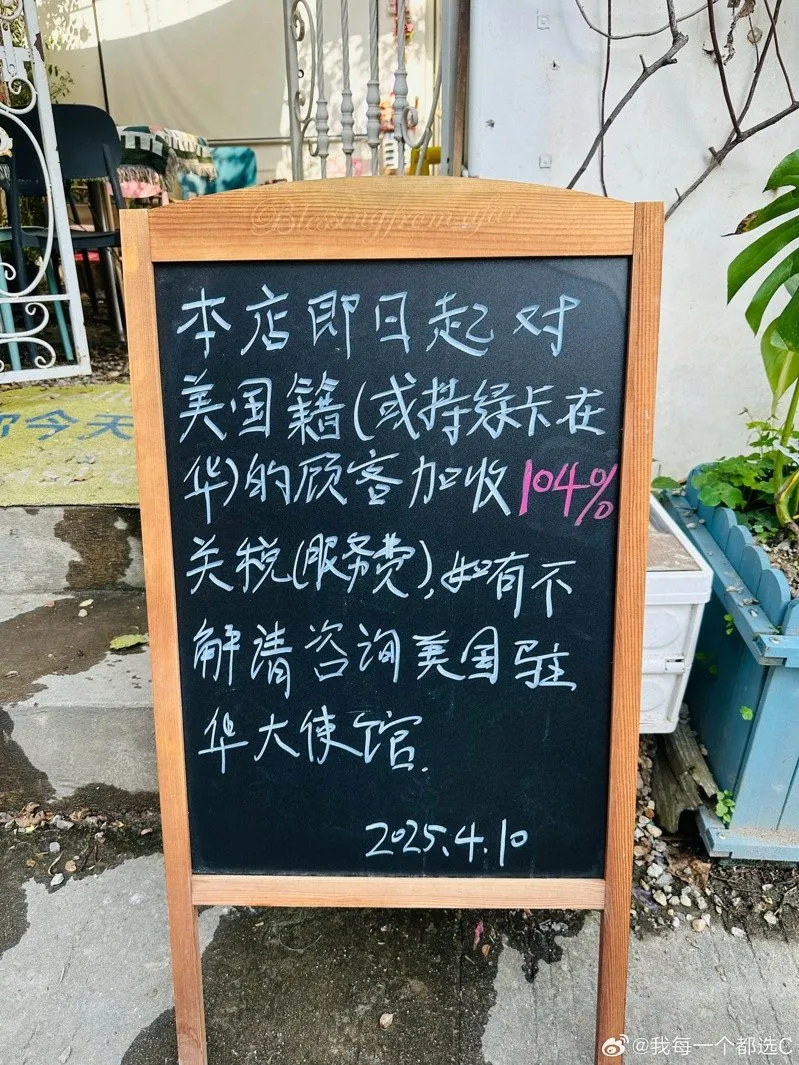 @Blessingfromafar
本店即日起对
美国籍(或持绿卡在
华)的顾客加收104%
关税(服务费),如有不
解请咨询美国驻
华大使馆.
2025.4.10
你今天
@我每一个都选C